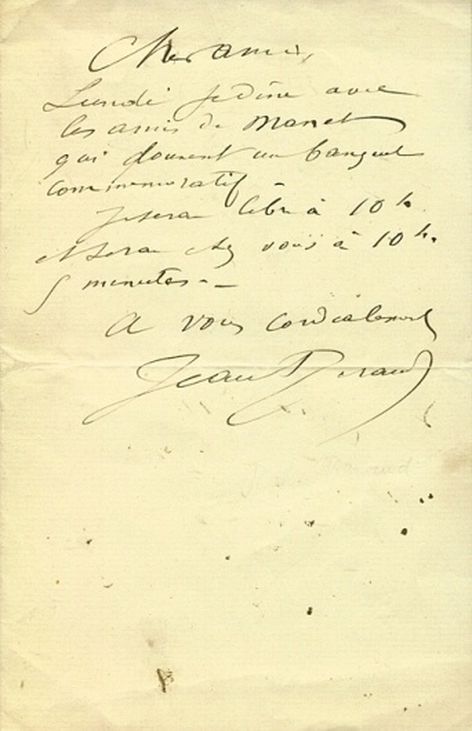 Cher ami,
Lundi je dîne avec
les amis de Manet
qui donnent un banquet
commémoratif -
Je serai libre à 10 h.
et serai chez vous à 10 h.
5 minutes. -
A vous cordialement
Jean Béraud